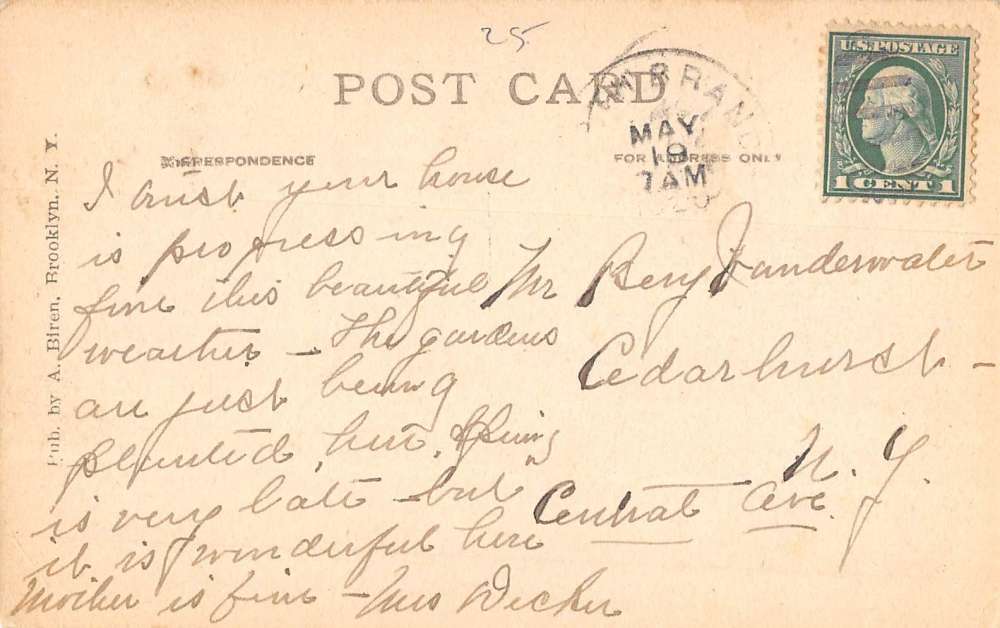 25
POST CARD
MAY
19
7AM
1920
U.S. POSTAGE
1 CENT 1
CORRESPONDENCE
FOR ADDRESS ONLY
Pub. by A. Biren, Brooklyn. N. Y.
I trust your house
is progressing
fine this beautiful
weather – The gardens
are just being
planted here. Spring
is very late – but
it is wonderful here
Mother is fine – Mrs Decker
Mr Benj Vanderwater
Cedarhurst –
N. Y.
Central Ave.